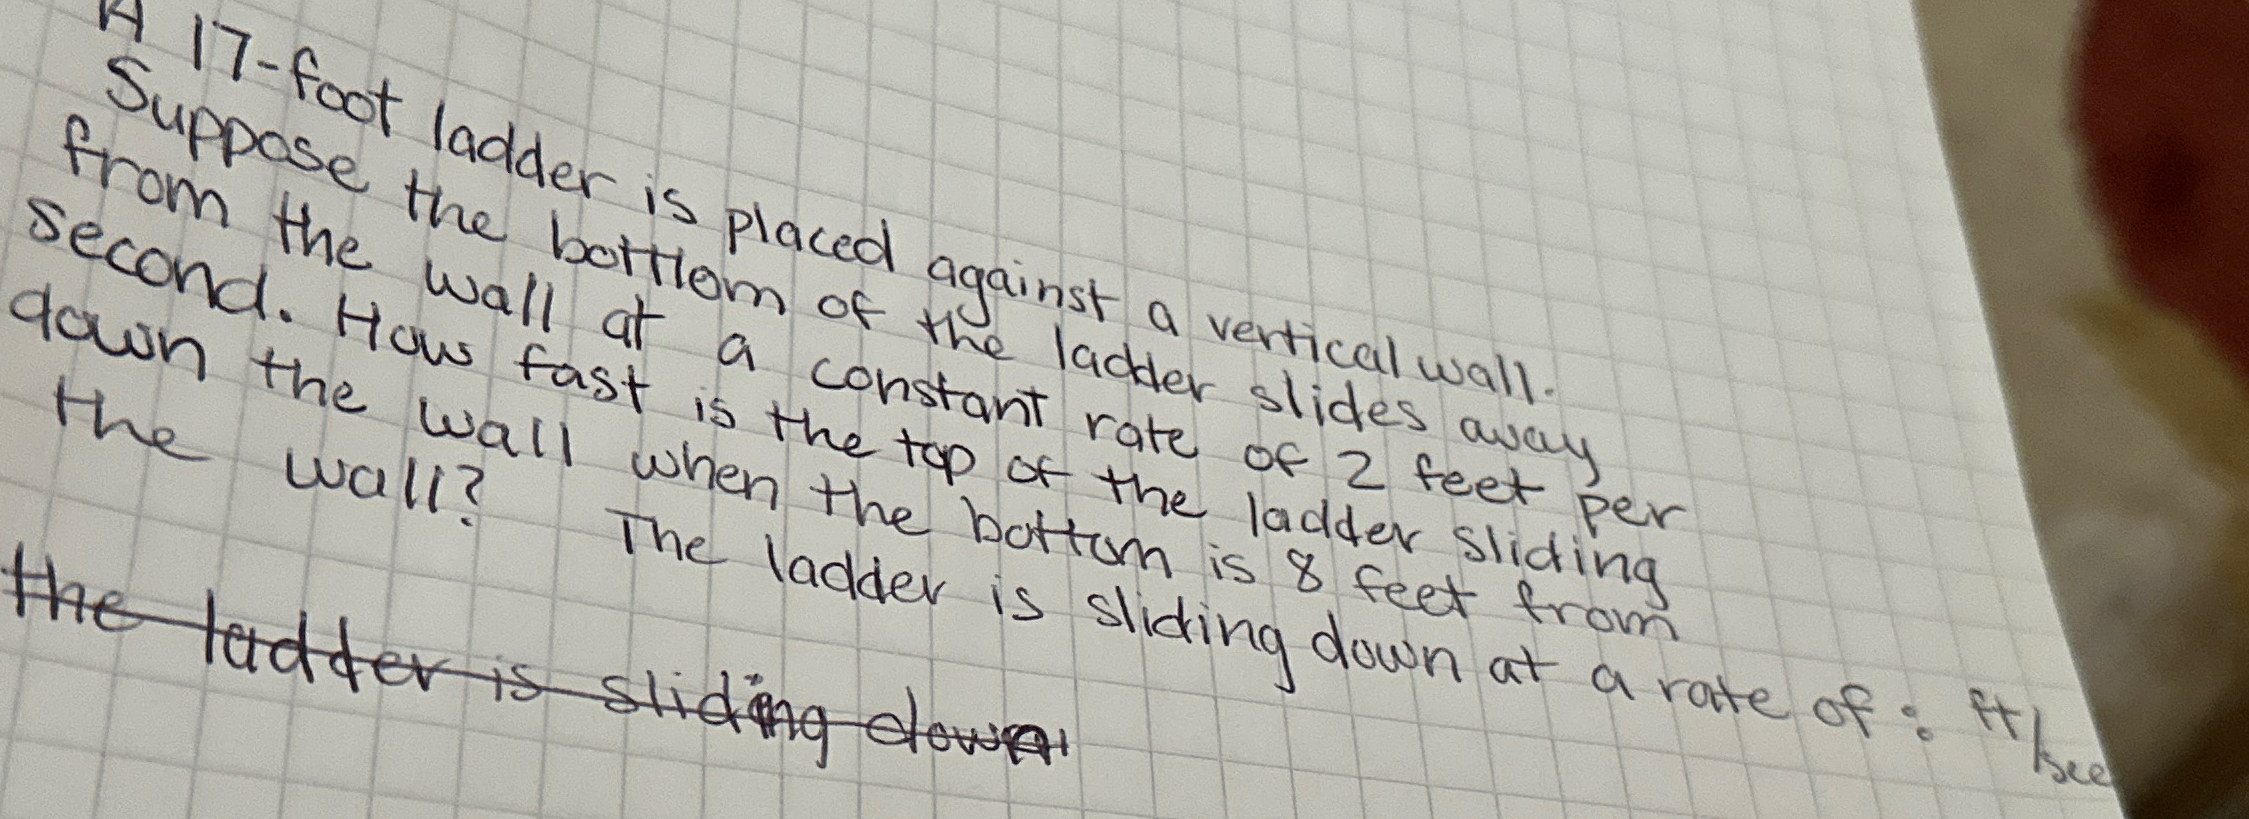 A 17-foot ladder is placed against a vertical wall.
Suppose the bottlom of the ladder slides away
from the wall at a constant rate of 2 feet per
second. How fast is the top of the ladder sliding
down the wall when the bottom is 8 feet from
the wall? The ladder is sliding down at a rate of : ft/sec
the ladder is sliding down